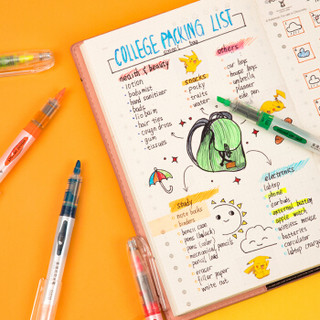 COLLEGE PACKING LIST
health & beauty
• lotion
• body mist
• hand sanitizer
• bads
• lip balm
• hair ties
• cough drops
• gum
• tissues
snacks
• pocky
• fruits
• water
others
• car keys
• house keys
• umbrella
• planner
study
• note books
• binders
• pencil case
• pens (black)
• pens (color)
• mechanical pencils
• pencil lead
• eraser
• filler paper
• white out
electronics
• laptop
• phone
• earbuds
• external battery
• apple watch
• wireless mouse
• batteries
• calculator
• laptop charger